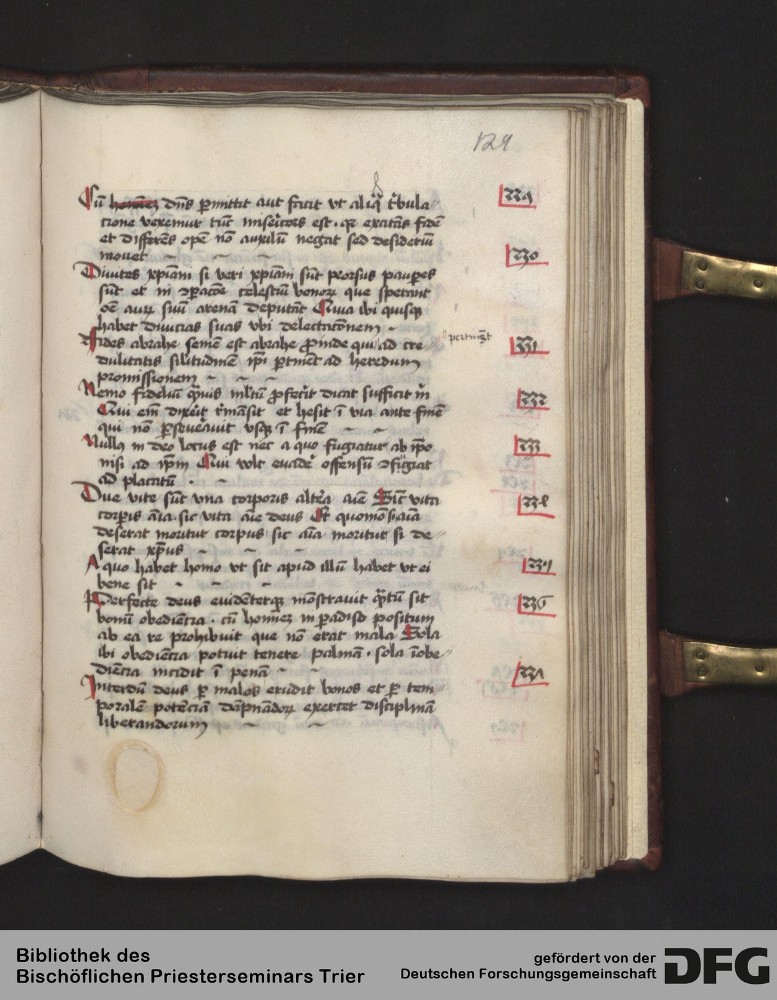 129
Cū hominez dn̄s ꝑmittit aut facit vt aliq̄ tribula
tione vexemur tūc misericors est · qr excitās fidē
et differēs opē nō auxiliū negat sed desideriū
mouet
229
Diuites xp̄iani si veri xp̄iani sūt prorsus pauꝑes
sūt et in ꝯꝑacōe celestiū bonorꝝ que sperant
oē aurū suū arenā deputāt Quia ibi quisqꝫ
habet diuicias suas vbi delectacōnem
230
Fides abrahe semē est abrahe proinde qui ad cre
pertinēt
dulitatis similitudinē ip̄i ꝑtinēt ad heredum
promissionem
231
Nemo fideliū q̄muis ml̄tū ꝓfecerit dicat sufficit m̄
Qui em̄ dixerit remāsit et hesit ī via ante finē
qui nō ꝑseuerauit vsqꝫ ī finē
232
Nullꝰ in deo locus est nec a quo fugiatur ab ip̄o
nisi ad ip̄m Qui vult euadere offensū ꝯfugiat
ad placatū
233
Due vite sūt vna corporis altera aīe Sic̄ vita
corꝑis aīa sic vita aīe deus Et quomō si aīa
deserat moritur corpus sic aīa moritur si de
serat xp̄us
234
A quo habet homo vt sit apud illū habet vt ei
bene sit
235
Perfecte deus euidēterqꝫ mōstrauit q̄tū sit
bonū obediētia · cū hoīnez in ꝑadiso positum
ab ea re prohibuit que nō erat mala Sola
ibi obediētia potuit tenere palmā · sola īobe
diētia incidit ī penā
236
Interdū deus ꝑ malos erudit bonos et ꝑ tem
poralē potēciā dāpnādorꝝ exercet disciplinā
liberandorum
237
Bibliothek des
Bischöflichen Priesterseminars Trier
gefördert von der
Deutschen Forschungsgemeinschaft
DFG